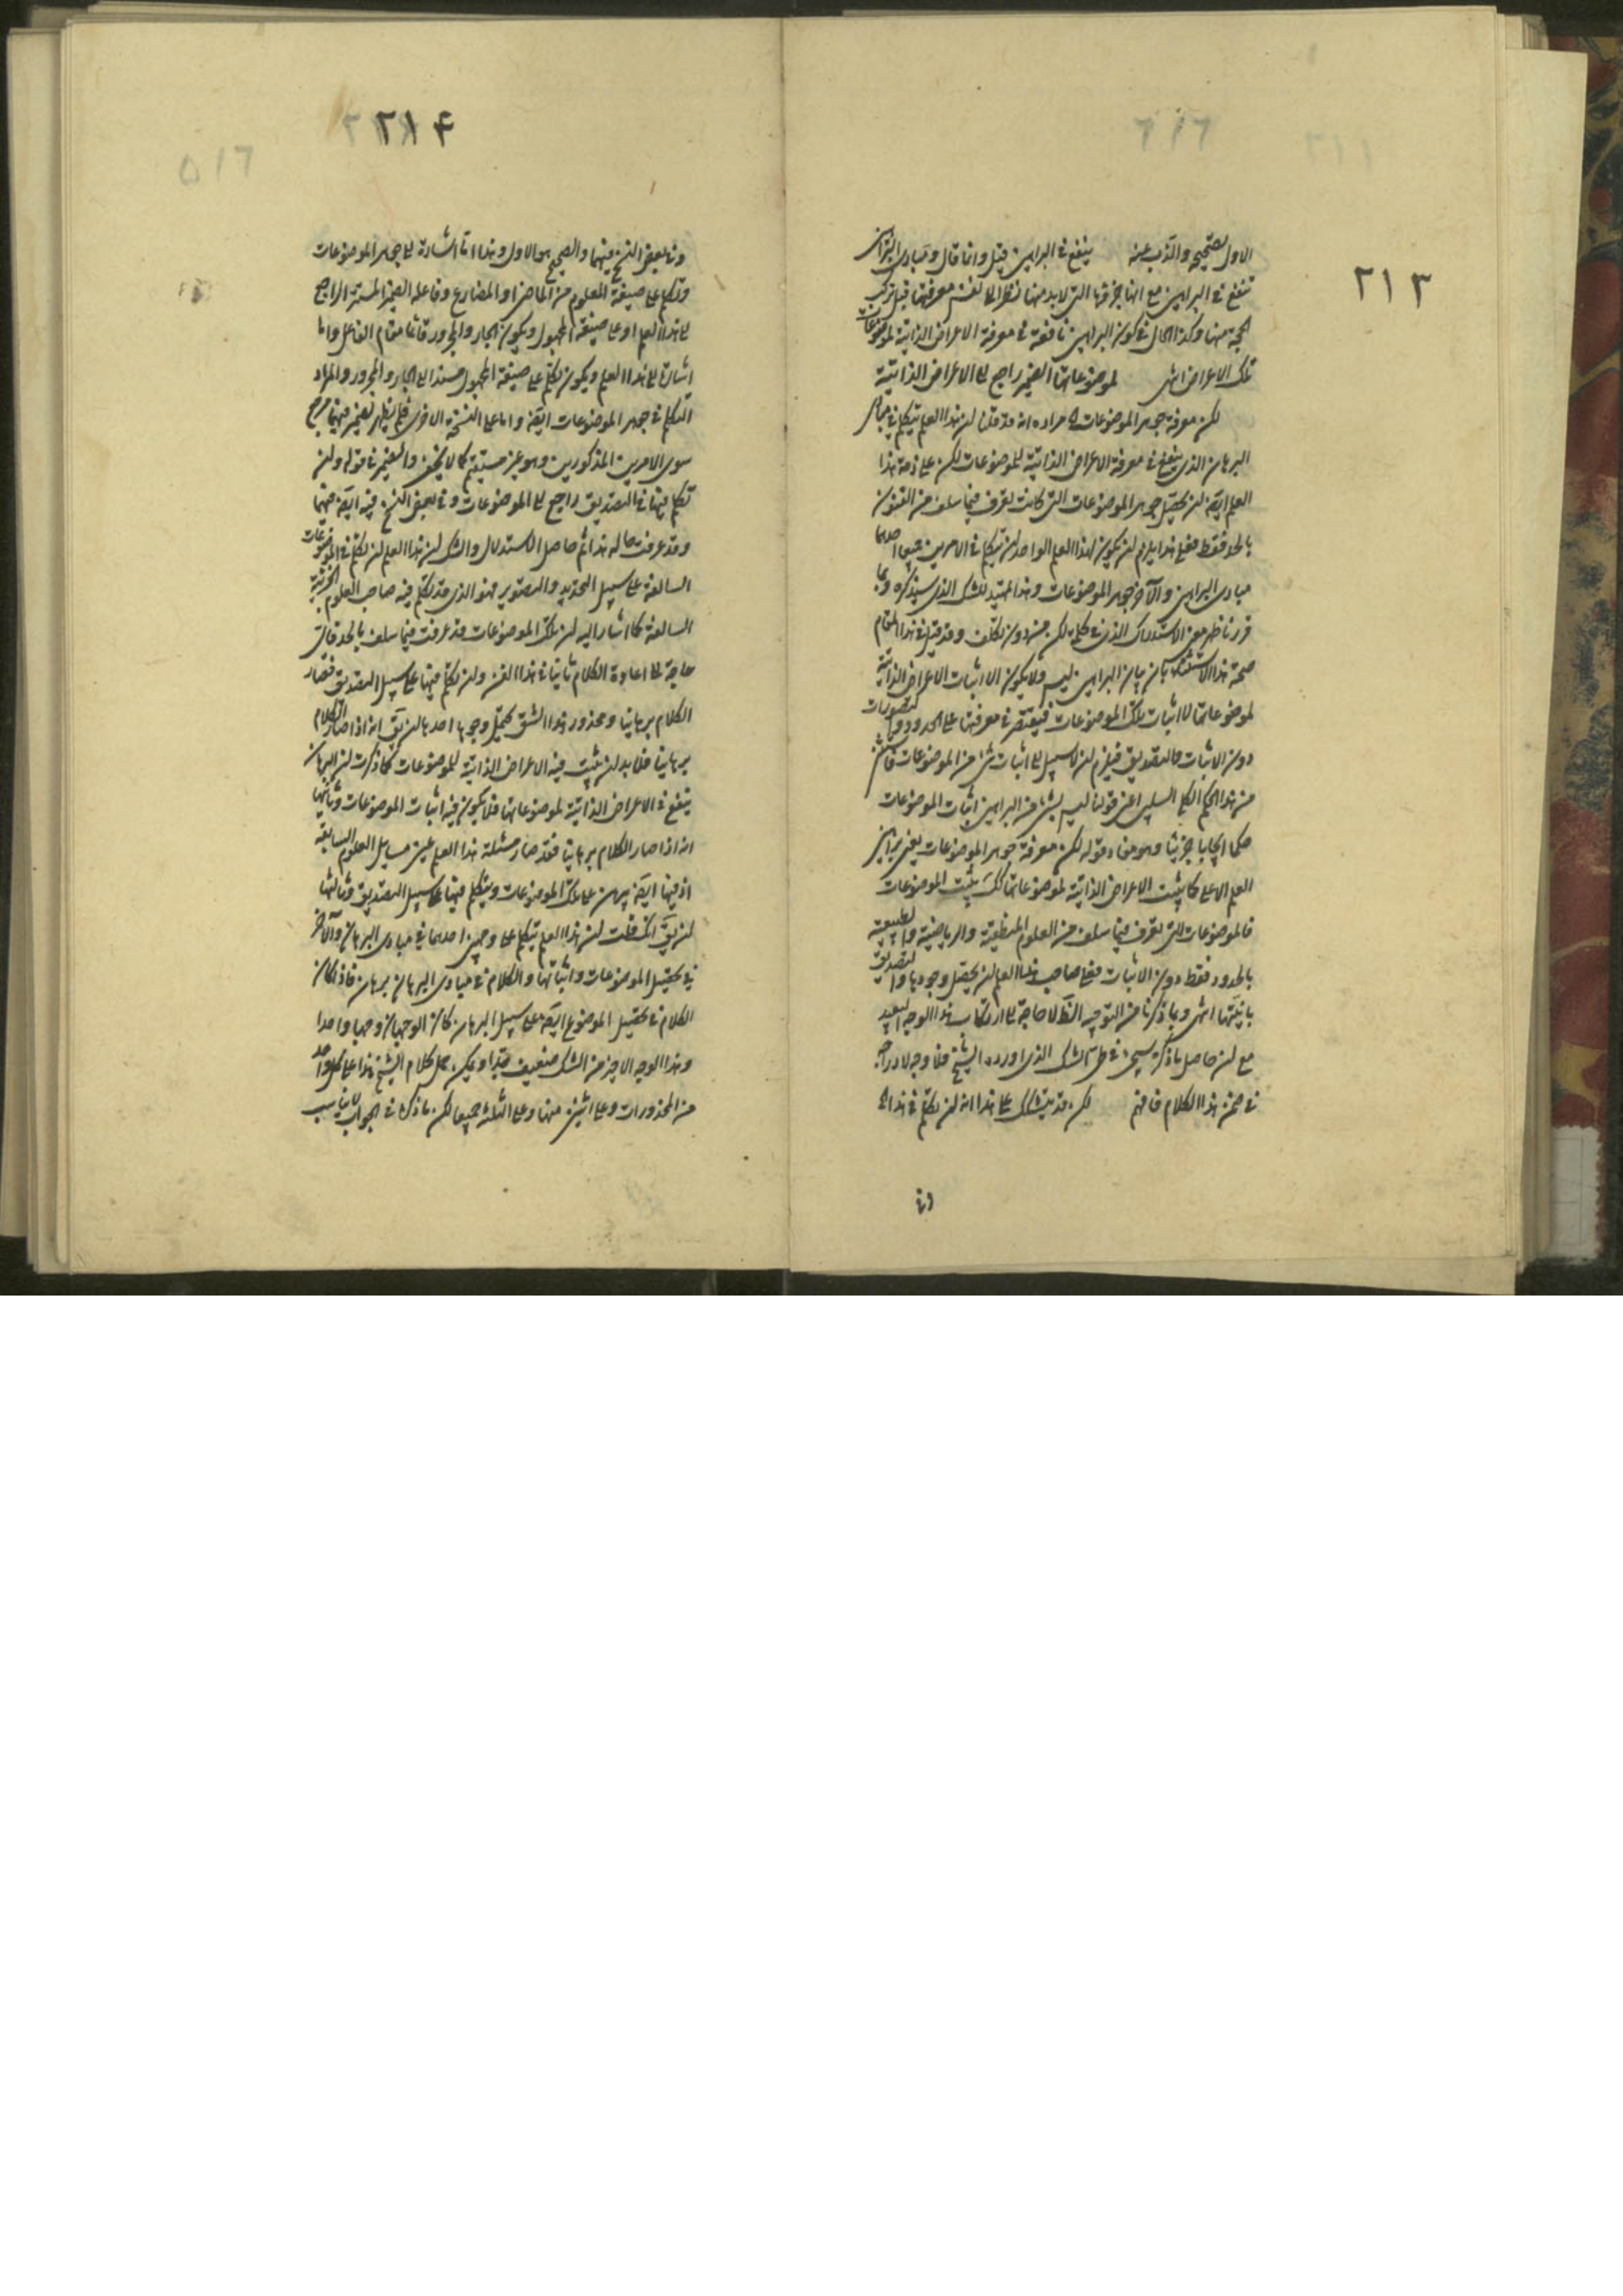 ٢١٣
الاول لتصحيحه والذب عنه ينفع في البراهين قيل وانما قال ومبادى البراهين
تنفع في البراهين مع انها جزؤها التي لا بد منها نظرا الى لغته معرفتها قبل تركيب
الحجة منها وكذا الحال في كون البراهين نافعة في معرفة الاعراض الذاتية لموضوعات
تلك الاعراض انتهى لموضوعاتها الضمير راجع الى الاعراض الذاتية
لكن معرفة جوهر الموضوعات مراده انه قد قلنا لن هذا العلم يتكلم في مبادى
البرهان الذى ينفع في معرفة الاعراض الذاتية للموضوعات لكن على ذمة هذا
العلم ايضا لن يحصل جوهر الموضوعات التي كانت تعرف فيما سلف من الفنون
بالحد فقط فعلى هذا يلزم لن يكون لهذا العلم الواحد لن يتكلم في الامرين جميعا احدهما
مبادى البراهين والآخر جوهر الموضوعات وهذا تمهيد للشك الذى سيذكره وبما
قررنا ظهر معنى الاستدراك الذى في كلمة لكن من دون تكلف وقد قيل في هذا المقام
صحة هذا الاستثناء بان بيان البراهين ليس ولا يكون الا اثبات الاعراض الذاتية
لموضوعاتها لا اثبات تلك الموضوعات فيقتصر في معرفتها على الحدود والتصورات
دون الاثبات والتصديق فيلزم لن لا سبيل الى اثبات شئ من الموضوعات
من هذا الحكم الكلى السلبى اعنى قولنا ليس بشئ من البراهين اثبات الموضوعات
حكما ايجابا جزئيا وهو مفاد قوله لكن معرفة جوهر الموضوعات يعنى براهين
العلم الاعلى كما يثبت الاعراض الذاتية لموضوعاتها كك يثبت الموضوعات
فالموضوعات التي تعرف فيما سلف من العلوم المنطقية والرياضية والطبيعية
بالحدود فقط دون الاثبات فعلى صاحب هذا العلم لن يحصل وجودها والتصديق
بانيتها انتهى وبما ذكرنا من التوجيه لا حاجة الى ارتكاب هذا الوجه البعيد
مع لن حاصل ما ذكره سيجئ في طى الشك الذى اورده الشيخ فلا وجه لادراجه
في ضمن هذا الكلام فافهم لكن قد يتشكك على هذا انه لن تكلم في هذا
٢١٤
وفي بعض النسخ فيهما والصحيح هو الاول وهذا اما اشارة الى جوهر الموضوعات
وتكلم على صيغة المعلوم من الماضى او المضارع وفاعله الضمير المستتر الراجع
الى هذا العلم او على صيغة المجهول ويكون الجار والمجرور قائما مقام الفاعل واما
اشارة الى هذا العلم ويكون تكلم على صيغة المجهول مسندا الى الجار والمجرور والمراد
التكلم في جوهر الموضوعات ايضا واما على النسخة الاخرى فلم يظهر لضمير فيهما مرجع
سوى الامرين المذكورين وهو غير مستقيم كما لا يخفى والضمير في قوله ولن
تكلم فيها في التصديق راجع الى الموضوعات وفي بعض النسخ فيه ايضا فيهما
وقد عرفت حاله هذا ثم حاصل الاستدلال والشك لن هذا العلم لن تكلم في الموضوعات
السالفة على سبيل التحديد والتصوير فهو الذى قد تكلم فيه صاحب العلوم الجزئية
السالفة كما اشار اليه لن تلك الموضوعات قد عرفت فيما سلف بالحد فاى
حاجة الى اعادة الكلام ثانيا في هذا الفن ولن تكلم فيها على سبيل التصديق فصار
الكلام برهانيا ومحذور هذا الشق يحتمل وجوها احدها لن يق انه اذا صار الكلام
برهانيا فلا بد لن يثبت فيه الاعراض الذاتية للموضوعات كما ذكرت لن البرهان
ينفع في الاعراض الذاتية لموضوعاتها فلا يكون فيه اثبات الموضوعات وثانيها
انه اذا صار الكلام برهانيا فقد صار مسئلة هذا العلم عين مسايل العلوم السابقة
اذ فيها ايضا يبرهن على تلك الموضوعات ويتكلم فيها على سبيل التصديق وثالثها
لن يق انك قلت لن هذا العلم يتكلم على وجهين احدهما في مبادى البرهان والآخر
في تحصيل الموضوعات واثباتها والكلام في مبادى البرهان برهان فاذا كان
الكلام في تحصيل الموضوع ايضا على سبيل البرهان كان الوجهان وجها واحدا
وهذا الوجه الاخير من الشك ضعيف جدا ويمكن حمل كلام الشيخ هذا على كل واحد
من المحذورات وعلى اثنين منها وعلى الثلثة جميعا لكن ما ذكره في الجواب لا يناسب